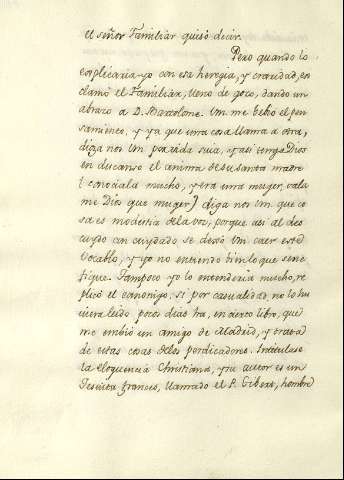 el señor Familiar quiso decir.
Pero quando lo
explicaria yo con esa heregia, y craridad, ex
clamó el Familiar, lleno de gozo, dando un
abrazo a D. Bartolome. Vm me bebio el pen
samiento, y ya que una cosa llama a otra,
diga nos Vm por vida sua, y asi tenga Dios
en descanso el anima de su santa madre
(conocíala mucho, y era una muger, vala
me Dios que muger) diga nos Vm que co
sa es modestia de la voz, porque asi al des
cuydo con cuydado se dexó Vm caer este
Vocablo, y yo no entiendo bien lo que sene
fique. Tampoco yo lo entenderia mucho, re
plicó el canonigo, si por casualidad no lo hu
viera leido pocos dias ha, en cierto libro, que
me embió un amigo de Madrid, y trata
de estas cosas de los predicadores. Intitulase
la eloquencia Christiana, y su autor es un
Jesuita frances, llamado el P. Gibert, hombre